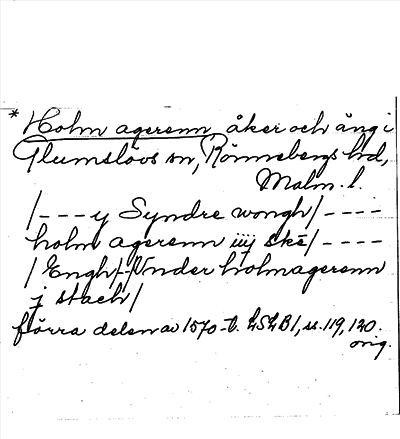 * Holm agerenn, åker och äng i
Glumslövs sn, Rönnebergs hd,
Malm. l.
/---y Syndre wongh/----
holm agerenn iiij skē/----
/Engh/-/Vnder holmagerenn
j stach/
förra delen av 1570-t. LSLB1, s. 119, 120.
orig.